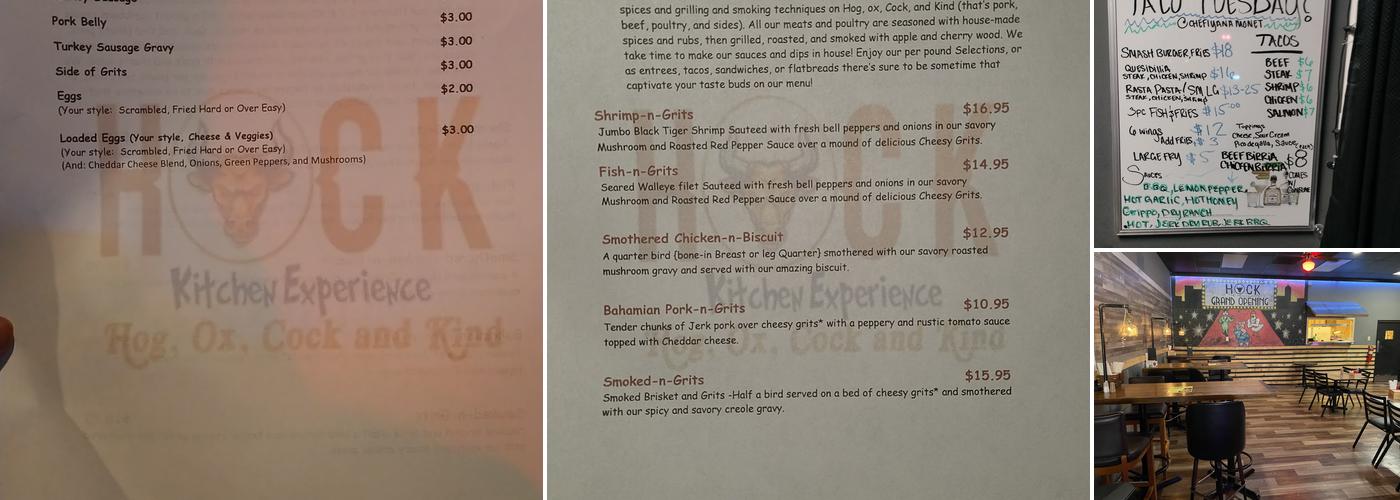 Pork Belly $3.00
Turkey Sausage Gravy $3.00
Side of Grits $3.00
Eggs $2.00
(Your style: Scrambled, Fried Hard or Over Easy)
Loaded Eggs (Your style, Cheese & Veggies) $3.00
(Your style: Scrambled, Fried Hard or Over Easy)
(And: Cheddar Cheese Blend, Onions, Green Peppers, and Mushrooms)
HOCK
Kitchen Experience
Hog, Ox, Cock and Kind
spices and grilling and smoking techniques on Hog, ox, Cock, and Kind (that's pork,
beef, poultry, and sides). All our meats and poultry are seasoned with house-made
spices and rubs, then grilled, roasted, and smoked with apple and cherry wood. We
take time to make our sauces and dips in house! Enjoy our per pound Selections, or
as entrees, tacos, sandwiches, or flatbreads there's sure to be sometime that
captivate your taste buds on our menu!
Shrimp-n-Grits $16.95
Jumbo Black Tiger Shrimp Sauteed with fresh bell peppers and onions in our savory
Mushroom and Roasted Red Pepper Sauce over a mound of delicious Cheesy Grits.
Fish-n-Grits $14.95
Seared Walleye filet Sauteed with fresh bell peppers and onions in our savory
Mushroom and Roasted Red Pepper Sauce over a mound of delicious Cheesy Grits.
Smothered Chicken-n-Biscuit $12.95
A quarter bird {bone-in Breast or leg Quarter} smothered with our savory roasted
mushroom gravy and served with our amazing biscuit.
Bahamian Pork-n-Grits $10.95
Tender chunks of Jerk pork over cheesy grits* with a peppery and rustic tomato sauce
topped with Cheddar cheese.
Smoked-n-Grits $15.95
Smoked Brisket and Grits -Half a bird served on a bed of cheesy grits* and smothered
with our spicy and savory creole gravy.
Kitchen Experience
Hog, Ox, Cock and Kind
TACO TUESDAY!
@CHEFIYANAMONET
SMASH BURGER, FRIES $18
QUESIDILLA
STEAK, CHICKEN, SHRIMP $16
RASTA PASTA/SM LG $13-25
STEAK, CHICKEN, SHRIMP
3pc FISH & FRIES $15.00
6 wings $12
Add FRIES, $3
LARGE FRY $5
Sauces
BBQ, LEMON PEPPER,
HOT GARLIC, HOT HONEY
Grippo, DRY RANCH
HOT, JERK DRY RUB, JERK BBQ
TACOS
BEEF $6
STEAK $7
SHRIMP $6
CHICKEN $6
SALMON $7
Toppings
Cheese, Sour Cream
Picodegallo, Sauce
BEEF BIRRIA
CHICKEN BIRRIA $8
COMES
W/
CONSOME
HOCK
GRAND OPENING